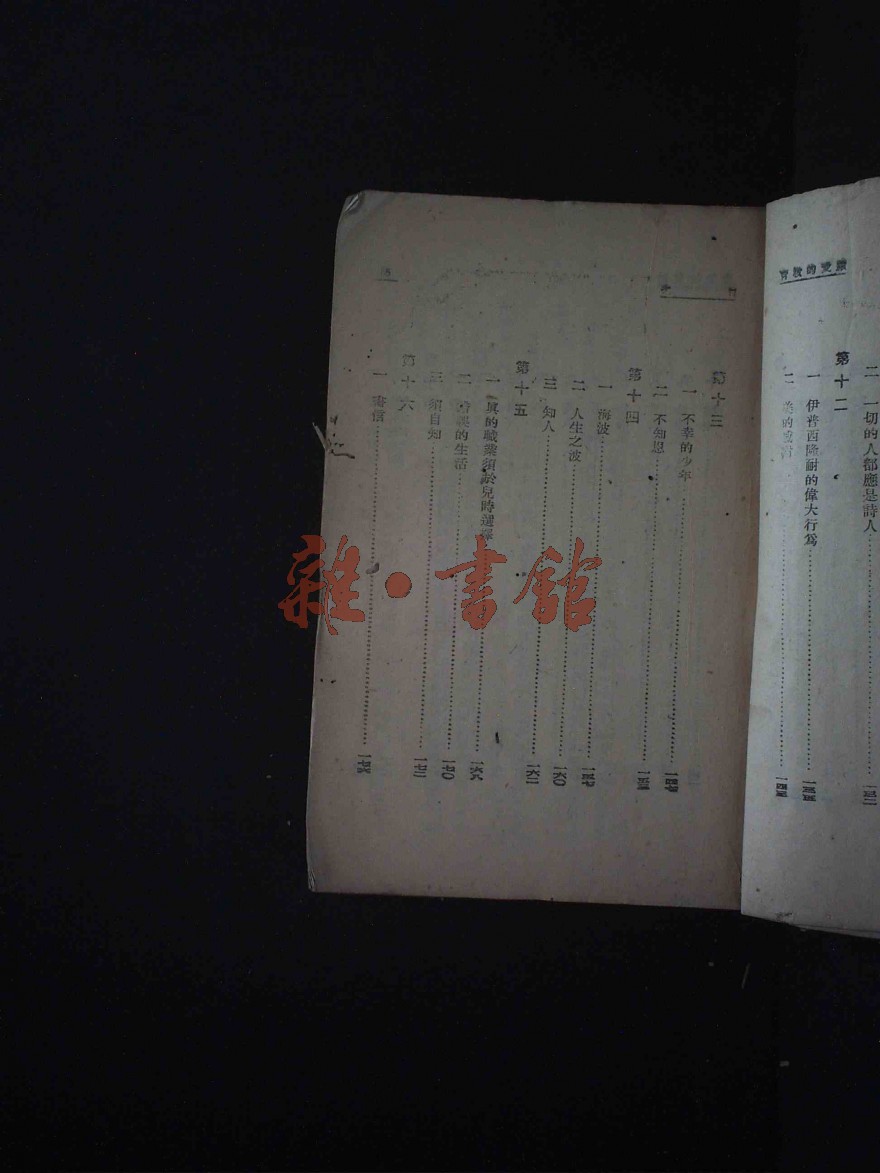 續愛的教育
二 一切的人都應是詩人
第十二
一 伊普西隆耐的偉大行爲
二 美的
第十三
一 不幸的少年
二 不知恩
第十四
一 海波……一五七
二 人生之波……一六〇
三 知人……一六二
第十五
一 眞的職業須於兒時選擇……一六六
二 的生活……一七〇
三 須自知……一七二
第十六
一 書信
雜·書館